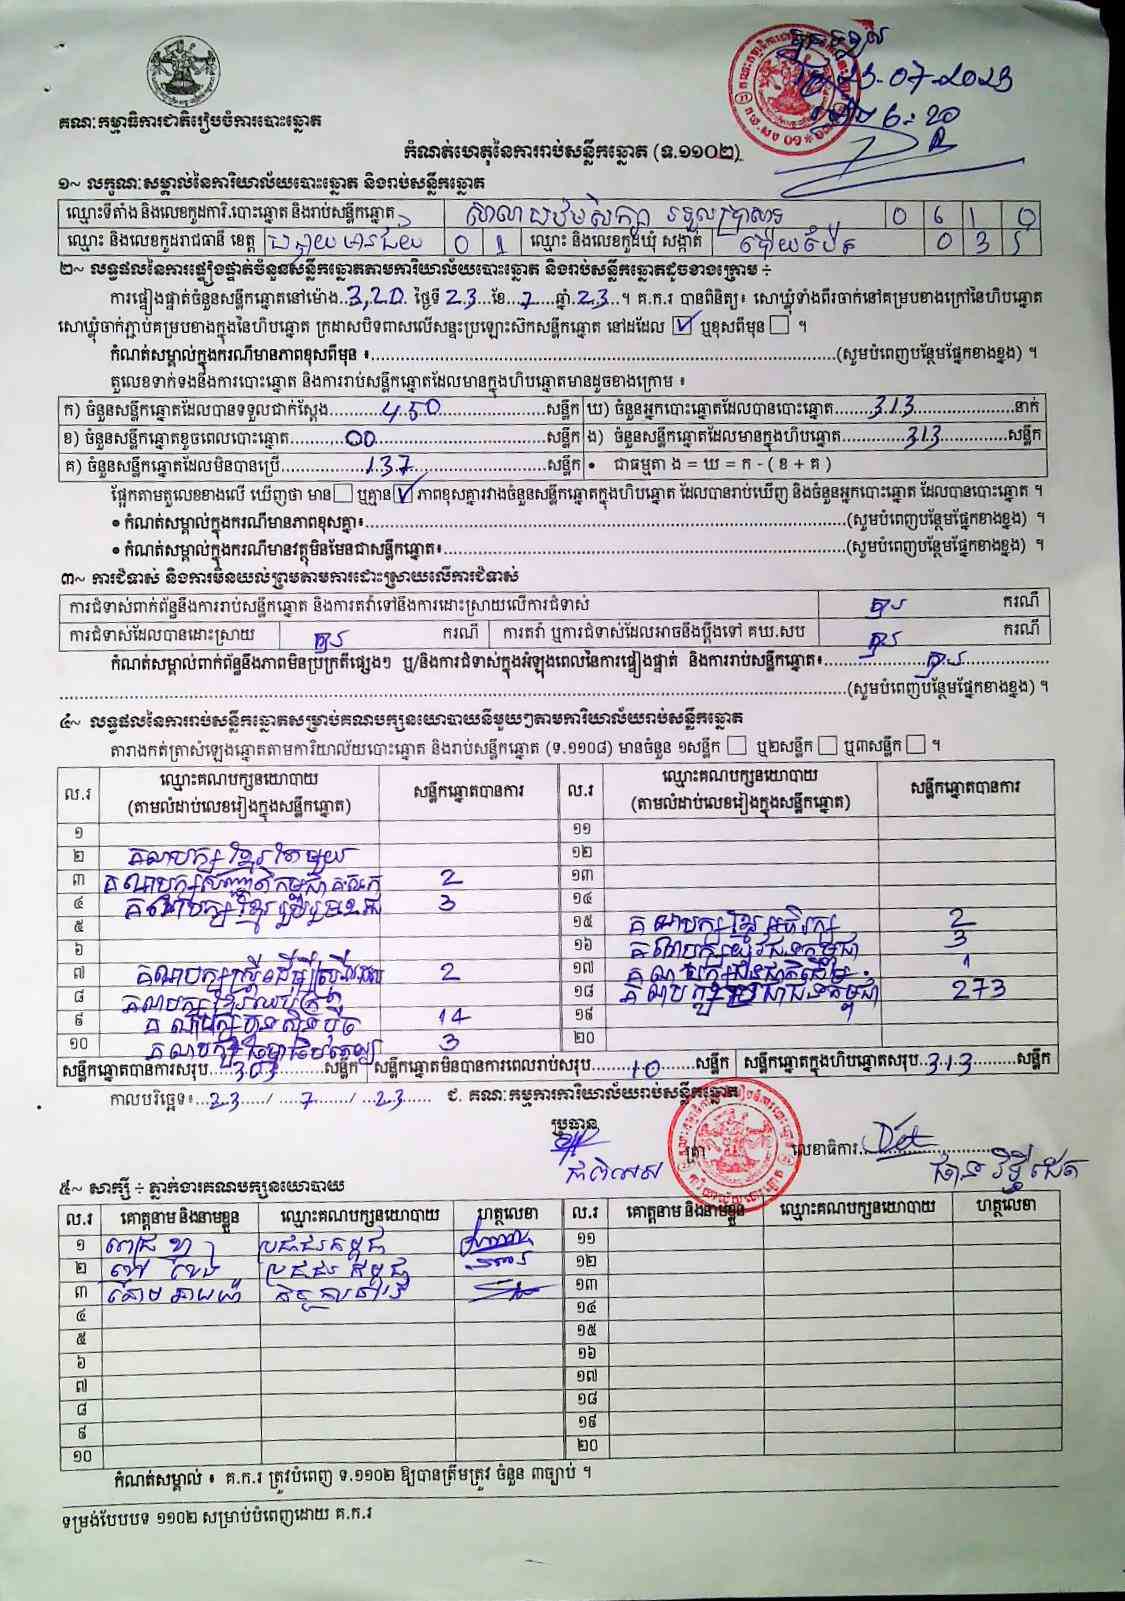 គណៈកម្មាធិការជាតិរៀបចំការបោះឆ្នោត
23-07-2023
6:20
កំណត់ហេតុនៃការរាប់សន្លឹកឆ្នោត (ទ.១១០២)
១~ លក្ខណៈសម្គាល់នៃការិយាល័យបោះឆ្នោត និងរាប់សន្លឹកឆ្នោត
ឈ្មោះទីតាំង និងលេខកូដការិ.បោះឆ្នោត និងរាប់សន្លឹកឆ្នោត សាលាបឋមសិក្សា ទួលប្រាសាទ 0 6 1 0
ឈ្មោះ និងលេខកូដរាជធានី ខេត្ត បន្ទាយមានជ័យ 0 1 ឈ្មោះ និងលេខកូដឃុំ សង្កាត់ ប៉ោយប៉ែត 0 3 5
២~ លទ្ធផលនៃការផ្ទៀងផ្ទាត់ចំនួនសន្លឹកឆ្នោតតាមការិយាល័យបោះឆ្នោត និងរាប់សន្លឹកឆ្នោតដូចខាងក្រោម ÷
ការផ្ទៀងផ្ទាត់ចំនួនសន្លឹកឆ្នោតនៅម៉ោង..3,20 ថ្ងៃទី 23...ខែ..7....ឆ្នាំ.23..។ គ.ក.រ បានពិនិត្យ៖ សោឃ្លុំទាំងពីរចាក់នៅគម្របខាងក្រៅនៃហិបឆ្នោត
សោឃ្លុំចាក់ភ្ជាប់គម្របខាងក្នុងនៃហិបឆ្នោត ក្រដាសបិទពាសលើសន្ទះប្រឡោះសឹកសន្លឹកឆ្នោត នៅដដែល ☑ ឬខុសពីមុន ☐ ។
កំណត់សម្គាល់ក្នុងករណីមានភាពខុសពីមុន ៖......(សូមបំពេញបន្ថែមផ្នែកខាងខ្នង) ។
តួលេខទាក់ទងនឹងការបោះឆ្នោត និងការរាប់សន្លឹកឆ្នោតដែលមានក្នុងហិបឆ្នោតមានដូចខាងក្រោម ៖
ក) ចំនួនសន្លឹកឆ្នោតដែលបានទទួលជាក់ស្តែង......450......សន្លឹក ឃ) ចំនួនអ្នកបោះឆ្នោតដែលបានបោះឆ្នោត......313......នាក់
ខ) ចំនួនសន្លឹកឆ្នោតខូចពេលបោះឆ្នោត......00......សន្លឹក ង) ចំនួនសន្លឹកឆ្នោតដែលមានក្នុងហិបឆ្នោត......313......សន្លឹក
គ) ចំនួនសន្លឹកឆ្នោតដែលមិនបានប្រើ......137......សន្លឹក • ជាធម្មតា ង = ឃ = ក - ( ខ + គ )
ផ្អែកតាមតួលេខខាងលើ ឃើញថា មាន ☐ ឬគ្មាន ☑ ភាពខុសគ្នារវាងចំនួនសន្លឹកឆ្នោតក្នុងហិបឆ្នោត ដែលបានរាប់ឃើញ និងចំនួនអ្នកបោះឆ្នោត ដែលបានបោះឆ្នោត ។
• កំណត់សម្គាល់ក្នុងករណីមានភាពខុសគ្នា៖......(សូមបំពេញបន្ថែមផ្នែកខាងខ្នង) ។
• កំណត់សម្គាល់ក្នុងករណីមានវត្ថុមិនមែនជាសន្លឹកឆ្នោត៖......(សូមបំពេញបន្ថែមផ្នែកខាងខ្នង) ។
៣~ ការជំទាស់ និងការមិនយល់ព្រមតាមការដោះស្រាយលើការជំទាស់
ការជំទាស់ពាក់ព័ន្ធនឹងការរាប់សន្លឹកឆ្នោត និងការតវ៉ាទៅនឹងការដោះស្រាយលើការជំទាស់ គ្មាន ករណី
ការជំទាស់ដែលបានដោះស្រាយ គ្មាន ករណី ការតវ៉ា ឬការជំទាស់ដែលអាចនឹងប្តឹងទៅ គឃ.សប គ្មាន ករណី
កំណត់សម្គាល់ពាក់ព័ន្ធនឹងភាពមិនប្រក្រតីផ្សេងៗ ឬ/និងការជំទាស់ក្នុងអំឡុងពេលនៃការផ្ទៀងផ្ទាត់ និងការរាប់សន្លឹកឆ្នោត៖......គ្មាន......
......(សូមបំពេញបន្ថែមផ្នែកខាងខ្នង) ។
៤~ លទ្ធផលនៃការរាប់សន្លឹកឆ្នោតសម្រាប់គណបក្សនយោបាយនីមួយៗតាមការិយាល័យរាប់សន្លឹកឆ្នោត
តារាងកត់ត្រាសំឡេងឆ្នោតតាមការិយាល័យបោះឆ្នោត និងរាប់សន្លឹកឆ្នោត (ទ.១១០៨) មានចំនួន ១សន្លឹក ☐ ឬ២សន្លឹក ☐ ឬ៣សន្លឹក ☐ ។
ល.រ ឈ្មោះគណបក្សនយោបាយ (តាមលំដាប់លេខរៀងក្នុងសន្លឹកឆ្នោត) សន្លឹកឆ្នោតបានការ ល.រ ឈ្មោះគណបក្សនយោបាយ (តាមលំដាប់លេខរៀងក្នុងសន្លឹកឆ្នោត) សន្លឹកឆ្នោតបានការ
១ ១១
២ គណបក្សខ្មែរតែមួយ ១២
៣ 2 ១៣
៤ គណបក្សខ្មែររួបរួមជាតិ 3 ១៤
៥ ១៥ គណបក្សខ្មែរអភិរក្ស 2
៦ ១៦ គណបក្សយុវជនកម្ពុជា 3
៧ គណបក្សស្ត្រីដើម្បីស្ត្រី 2 ១៧ គណបក្សជនជាតិដើម 1
៨ ១៨ គណបក្សប្រជាជនកម្ពុជា 273
៩ គណបក្សហ្វ៊ុនស៊ិនប៉ិច 14 ១៩
១០ 3 ២០
សន្លឹកឆ្នោតបានការសរុប......303......សន្លឹក សន្លឹកឆ្នោតមិនបានការពេលរាប់សរុប......10......សន្លឹក សន្លឹកឆ្នោតក្នុងហិបឆ្នោតសរុប...313......សន្លឹក
កាលបរិច្ឆេទ៖...23..../....7..../...23...... ជ. គណៈកម្មការការិយាល័យរាប់សន្លឹកឆ្នោត
ប្រធាន
ត្រា លេខាធិការ
៥~ សាក្សី ÷ ភ្នាក់ងារគណបក្សនយោបាយ
ល.រ គោត្តនាម និងនាមខ្លួន ឈ្មោះគណបក្សនយោបាយ ហត្ថលេខា ល.រ គោត្តនាម និងនាមខ្លួន ឈ្មោះគណបក្សនយោបាយ ហត្ថលេខា
១ ប្រជាជនកម្ពុជា ១១
២ ប្រជាជនកម្ពុជា ១២
៣ ១៣
៤ ១៤
៥ ១៥
៦ ១៦
៧ ១៧
៨ ១៨
៩ ១៩
១០ ២០
កំណត់សម្គាល់ ៖ គ.ក.រ ត្រូវបំពេញ ទ.១១០២ ឱ្យបានត្រឹមត្រូវ ចំនួន ៣ច្បាប់ ។
ទម្រង់បែបបទ ១១០២ សម្រាប់បំពេញដោយ គ.ក.រ